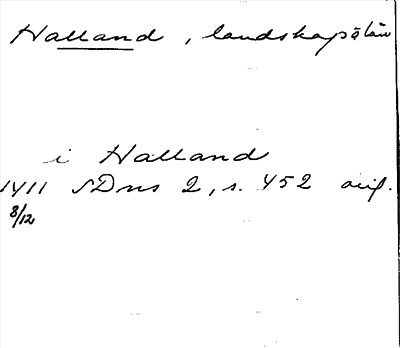 Halland, landskap o län
i Halland
1411 SDns 2, s. 452 orig.
8/12